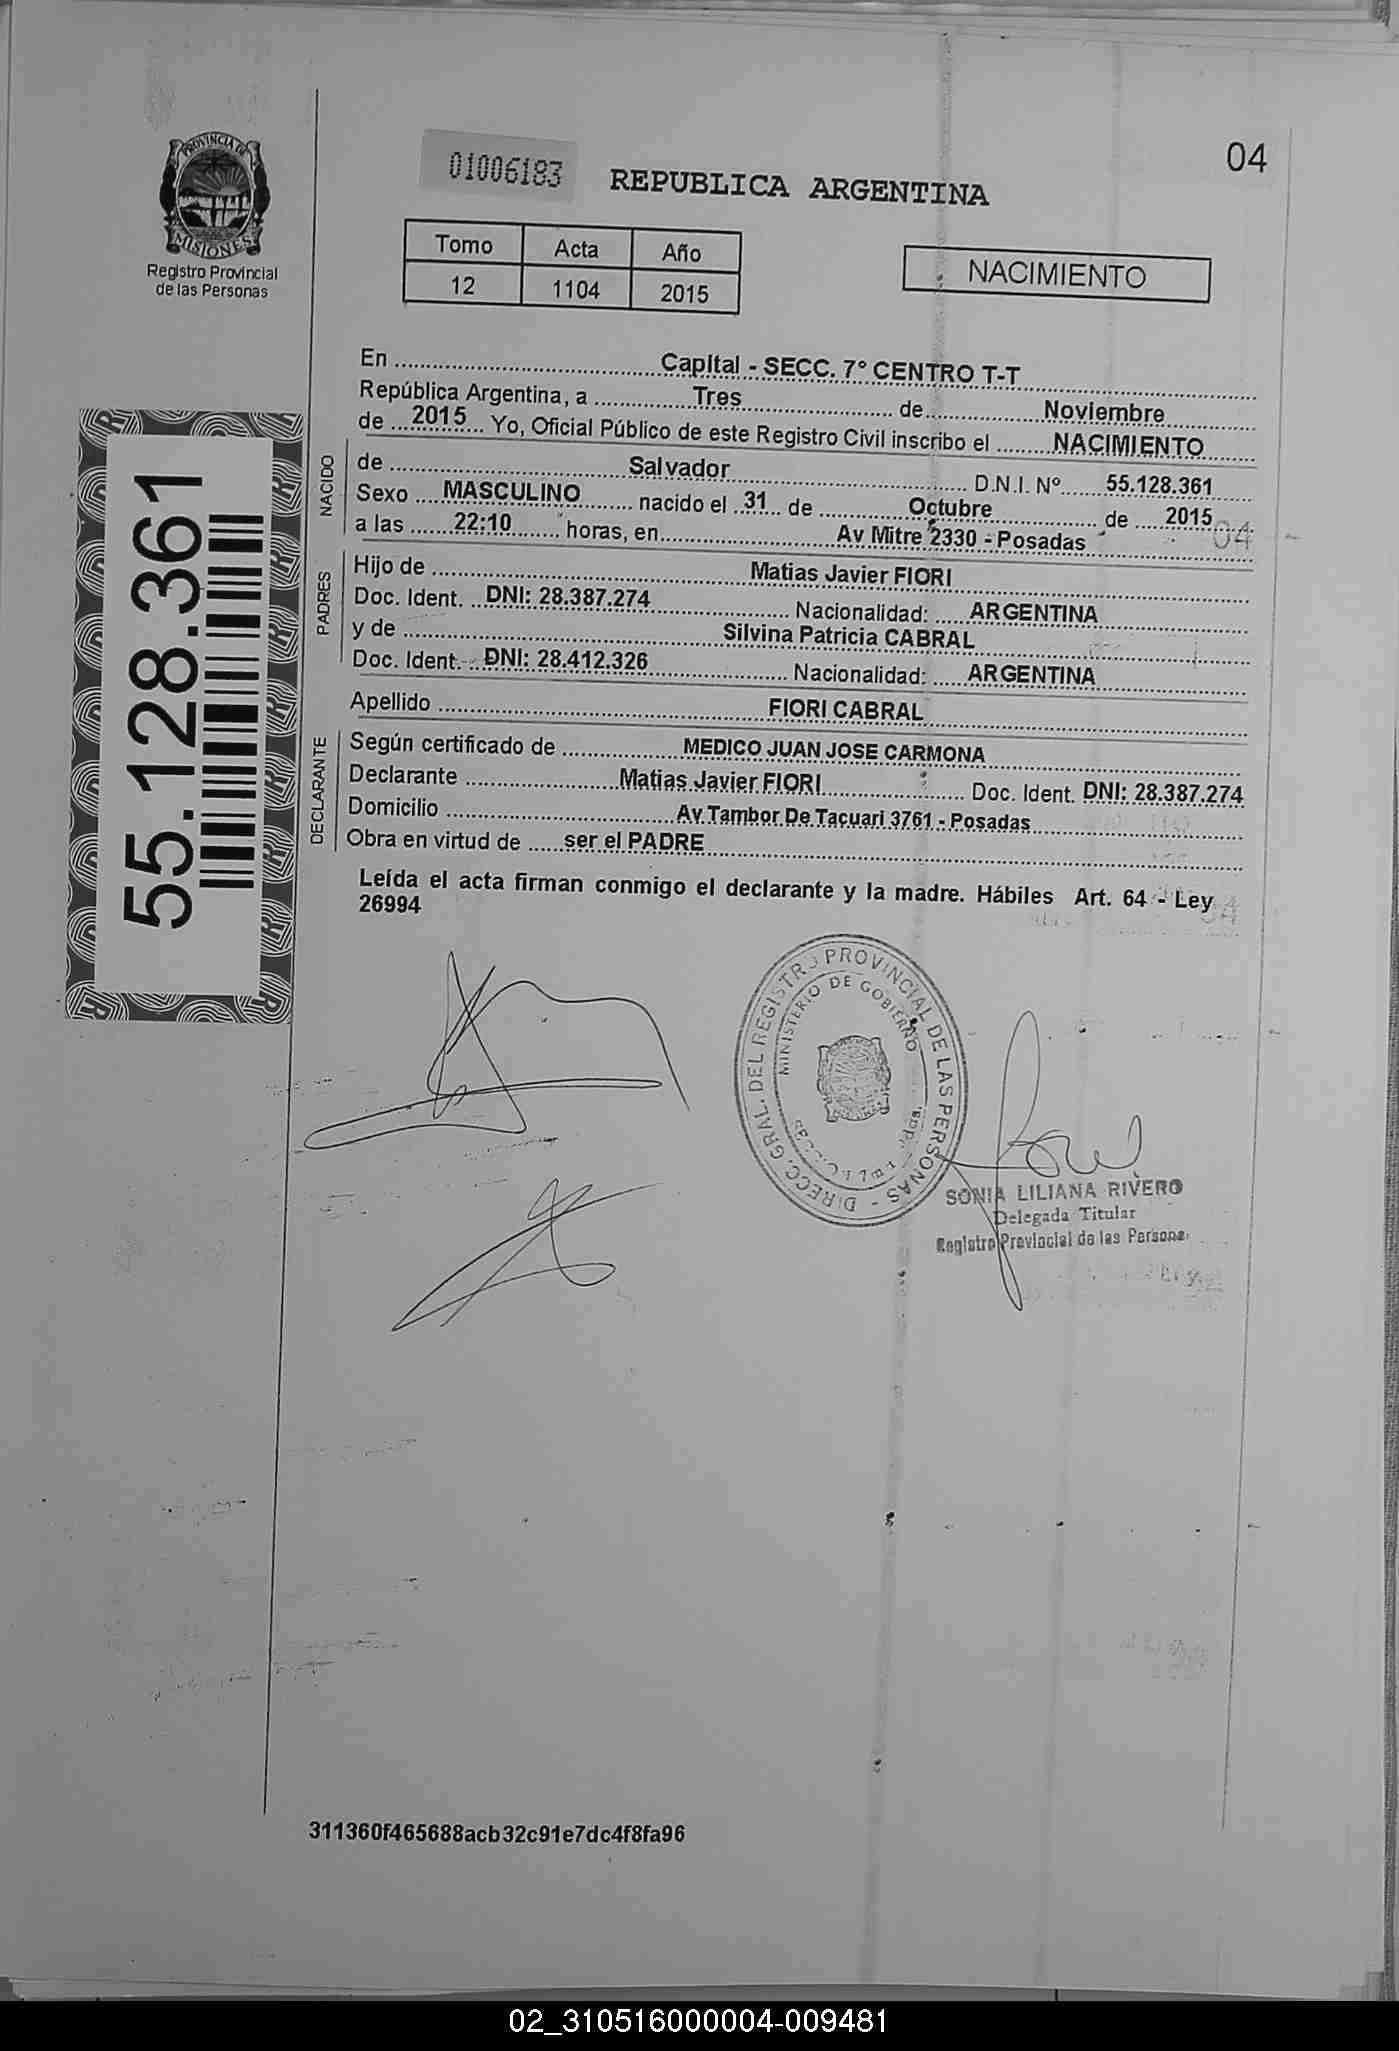 PROVINCIA DE
MISIONES
Registro Provincial
de las Personas
01006183
REPUBLICA ARGENTINA
04
Tomo Acta Año
12 1104 2015
NACIMIENTO
En Capital - SECC. 7° CENTRO T-T
República Argentina, a Tres de Noviembre
de 2015 Yo, Oficial Público de este Registro Civil inscribo el NACIMIENTO
NACIDO
de Salvador D.N.I. Nº 55.128.361
Sexo MASCULINO nacido el 31 de Octubre de 2015
a las 22:10 horas, en Av Mitre 2330 - Posadas
04
PADRES
Hijo de Matias Javier FIORI
Doc. Ident. DNI: 28.387.274 Nacionalidad: ARGENTINA
y de Silvina Patricia CABRAL
Doc. Ident. DNI: 28.412.326 Nacionalidad: ARGENTINA
Apellido FIORI CABRAL
DECLARANTE
Según certificado de MEDICO JUAN JOSE CARMONA
Declarante Matias Javier FIORI Doc. Ident. DNI: 28.387.274
Domicilio Av Tambor De Tacuari 3761 - Posadas
Obra en virtud de ser el PADRE
Leída el acta firman conmigo el declarante y la madre. Hábiles Art. 64 - Ley
26994
55.128.361
DIRECC. GRAL. DEL REGISTRO PROVINCIAL DE LAS PERSONAS -
MINISTERIO DE GOBIERNO
SONIA LILIANA RIVERO
Delegada Titular
Registro Provincial de las Persona
311360f465688acb32c91e7dc4f8fa96
02_310516000004-009481